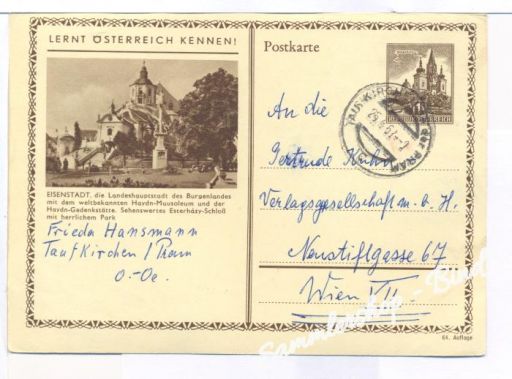 LERNT ÖSTERREICH KENNEN!
EISENSTADT, die Landeshauptstadt des Burgenlandes
mit dem weltbekannten Haydn-Mausoleum und der
Haydn-Gedenkstätte. Sehenswertes Esterházy-Schloß
mit herrlichem Park
Frieda Hansmann
Taufkirchen / Pram
O.-Oe.
Postkarte
REPUBLIK ÖSTERREICH
TAUFKIRCHEN
PRAM
An die
Gertrude
Verlagsgesellschaft m. b. H.
Neustiftgasse 67
Wien VII.
64. Auflage
Sammlershop -